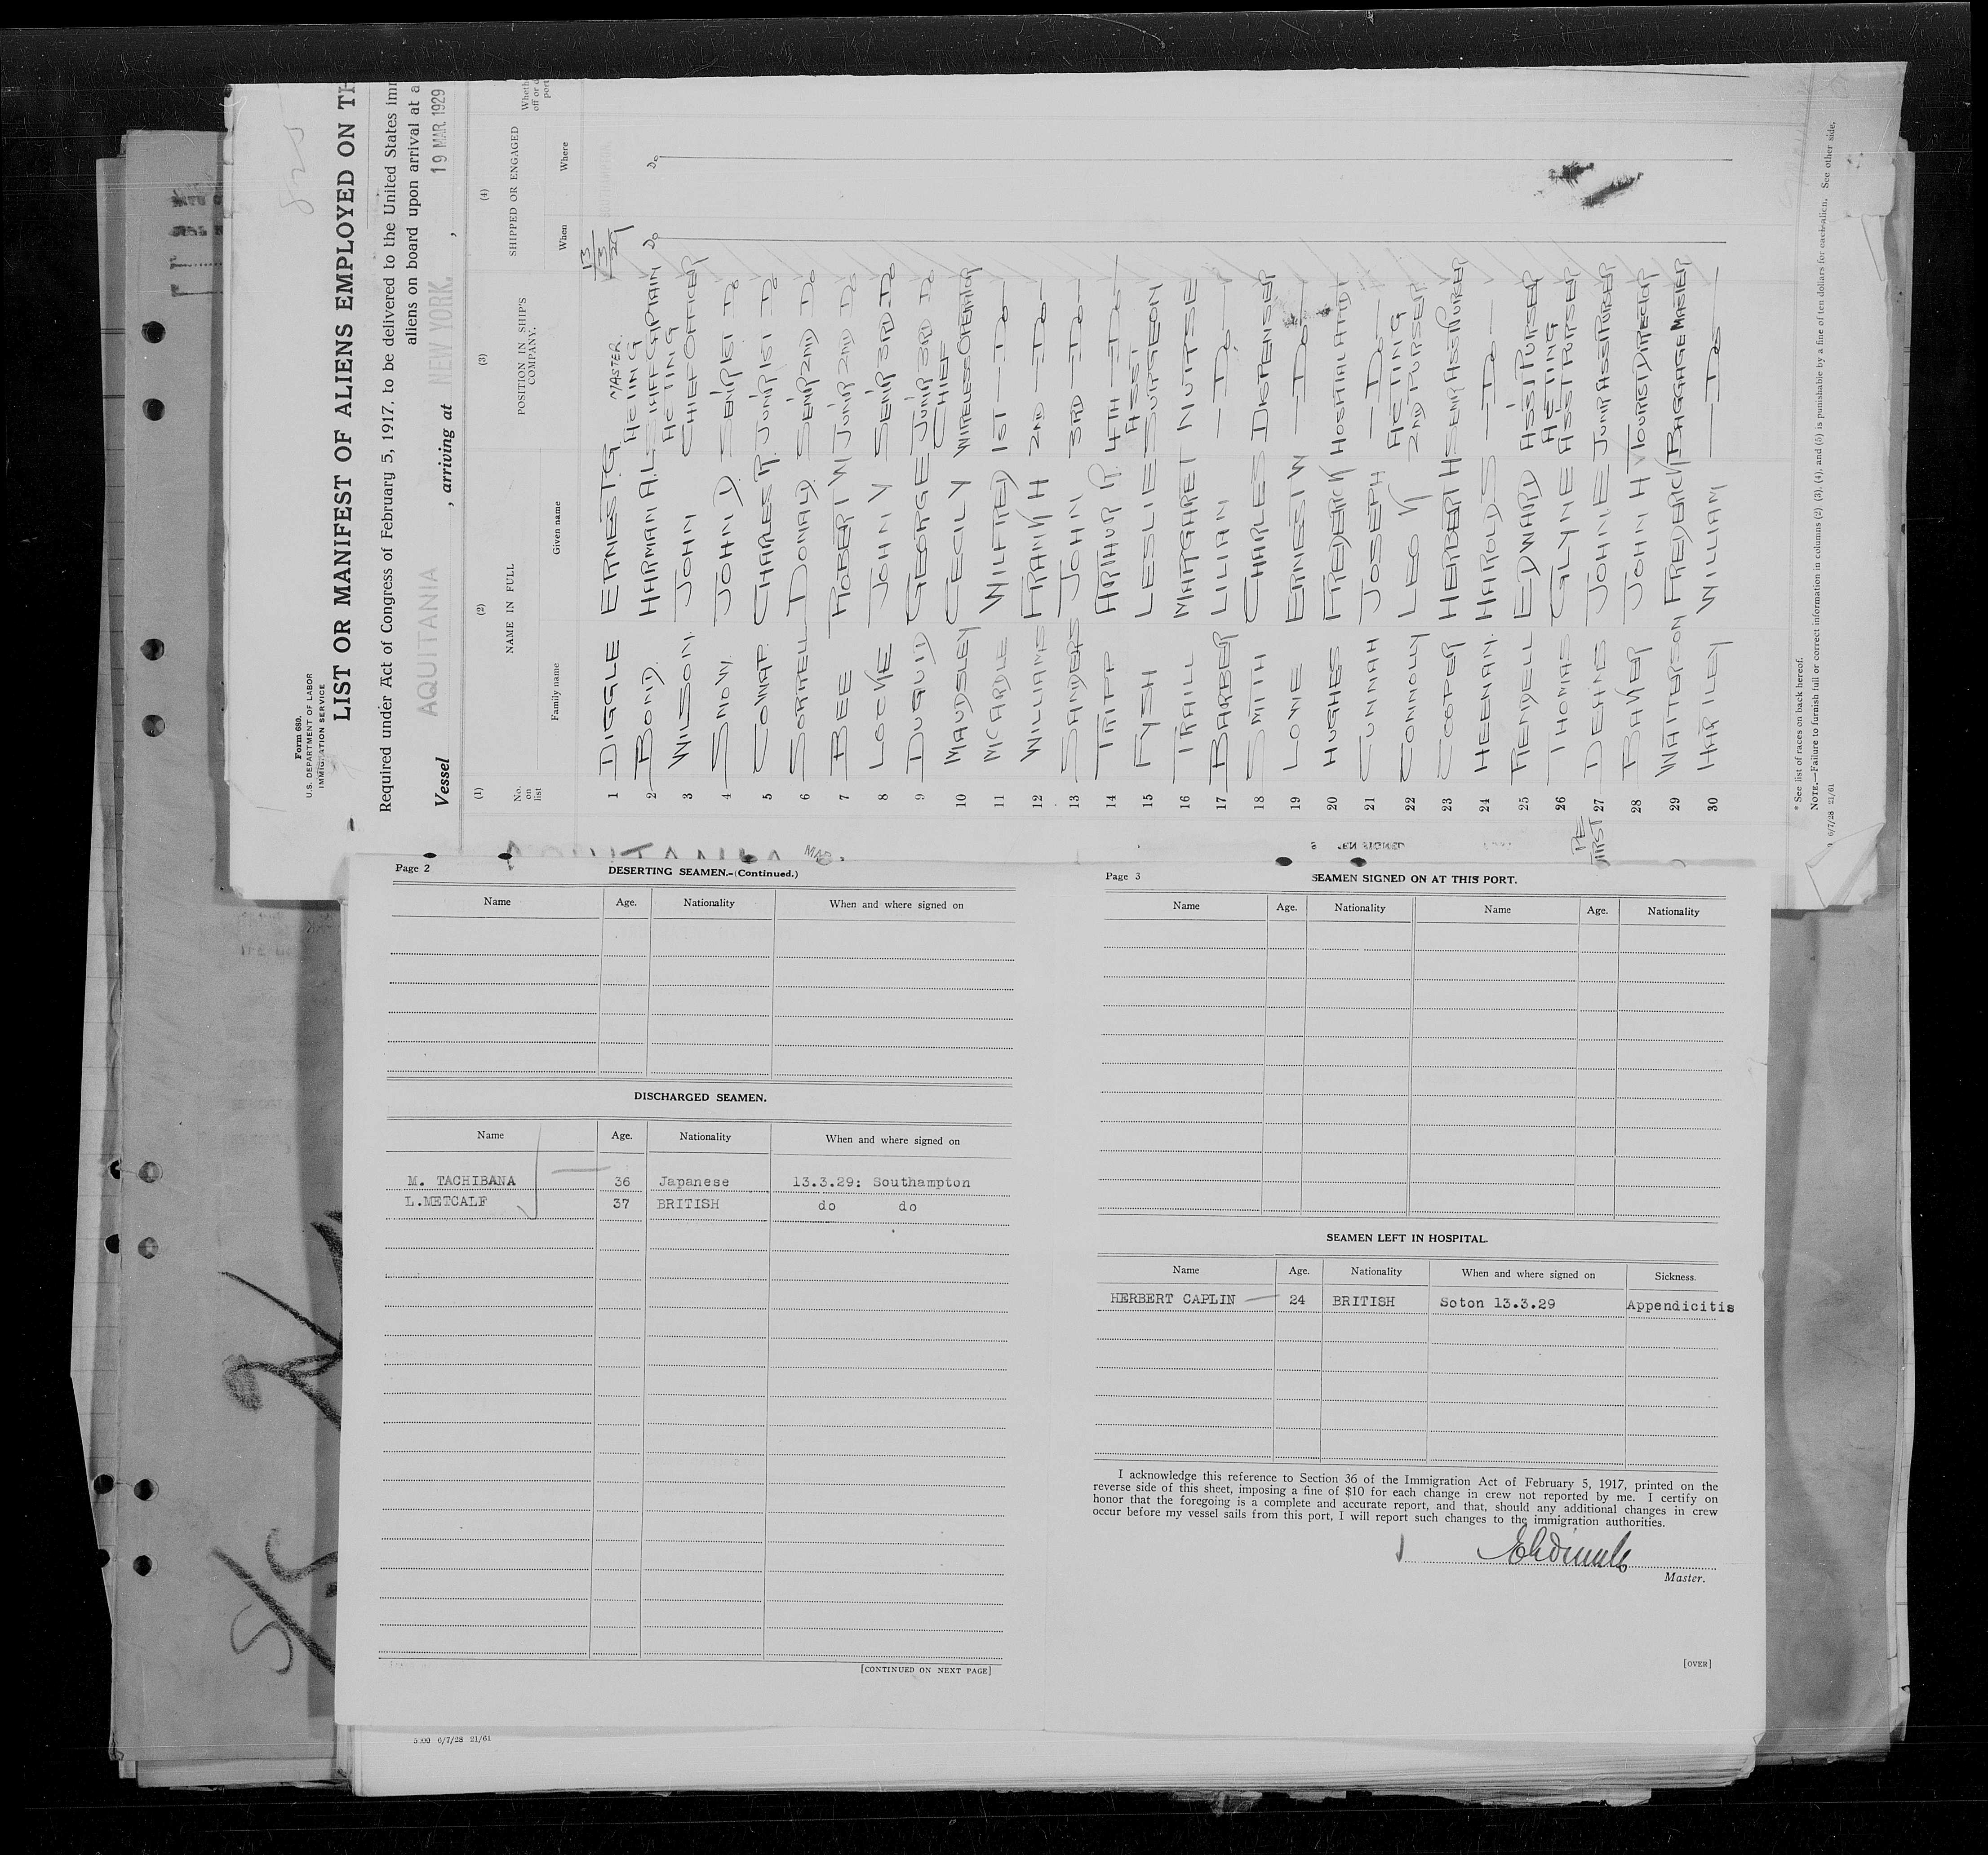 Form 680.
U.S. DEPARTMENT OF LABOR
IMMIGRATION SERVICE
LIST OR MANIFEST OF ALIENS EMPLOYED ON TH
Required under Act of Congress of February 5, 1917, to be delivered to the United States imm
aliens on board upon arrival at a
Vessel AQUITANIA , arriving at NEW YORK. , 19 MAR. 1929
(1) (2) (3) (4)
No. on list NAME IN FULL POSITION IN SHIP'S COMPANY. SHIPPED OR ENGAGED
Family name Given name When Where
1 DIGGLE ERNEST.G. MASTER 13/3/29
2 BOND. HARMAN A.L. ACTING STAFF CAPTAIN Do Do
3 WILSON. JOHN ACTING CHIEF OFFICER
4 SNOW. JOHN D SENR 1ST Do
5 CHARLES R. JUNR 1ST Do
6 SORRELL DONALD. SENR 2ND Do
7 BEE ROBERT W JUNR 2ND Do
8 LOCKE JOHN V SENR 3RD Do
9 DUGUID GEORGE JUNR 3RD Do
10 MAUDSLEY CECIL Y CHIEF WIRELESS OPERATOR
11 MCARDLE WILFRED 1ST — Do
12 WILLIAMS FRANK H 2ND — Do
13 SANDERS JOHN 3RD — Do
14 TRIPP ARTHUR R. 4TH — Do
15 FYSH LESLIE ASST SURGEON
16 TRAILL MARGARET NURSE
17 BARBER LILIAN — Do
18 SMITH CHARLES DISPENSER
19 LOWE ERNEST W — Do —
20 HUGHES FREDERICK HOSPITAL ATTDT
21 CUNNAH JOSEPH — Do —
22 CONNOLLY LEO K ACTING 2ND PURSER
23 COOPER HERBERT H SENR ASST PURSER
24 HEENAN. HAROLD S — Do —
25 RENDELL EDWARD ASST PURSER
26 THOMAS GLYNE ACTING ASST PURSER
27 DEHNS JOHN E JUNR ASST PURSER
28 BAKER JOHN H TOURIST DIRECTOR
29 WATTERSON FREDERICK BAGGAGE MASTER
30 HARTLEY WILLIAM — Do —
* See list of races on back hereof.
NOTE.—Failure to furnish full or correct information in columns (2) (3), (4), and (5) is punishable by a fine of ten dollars for each alien. See other side.
6/7/28 21/61
Page 2
DESERTING SEAMEN.-(Continued.)
Name Age. Nationality When and where signed on
DISCHARGED SEAMEN.
Name Age. Nationality When and where signed on
M. TACHIBANA 36 Japanese 13.3.29: Southampton
L.METCALF 37 BRITISH do do
[CONTINUED ON NEXT PAGE]
5000 6/7/28 21/61
Page 3
SEAMEN SIGNED ON AT THIS PORT.
Name Age. Nationality Name Age. Nationality
SEAMEN LEFT IN HOSPITAL.
Name Age. Nationality When and where signed on Sickness.
HERBERT CAPLIN 24 BRITISH Soton 13.3.29 Appendicitis
I acknowledge this reference to Section 36 of the Immigration Act of February 5, 1917, printed on the
reverse side of this sheet, imposing a fine of $10 for each change in crew not reported by me. I certify on
honor that the foregoing is a complete and accurate report, and that, should any additional changes in crew
occur before my vessel sails from this port, I will report such changes to the immigration authorities.
Master.
[OVER]